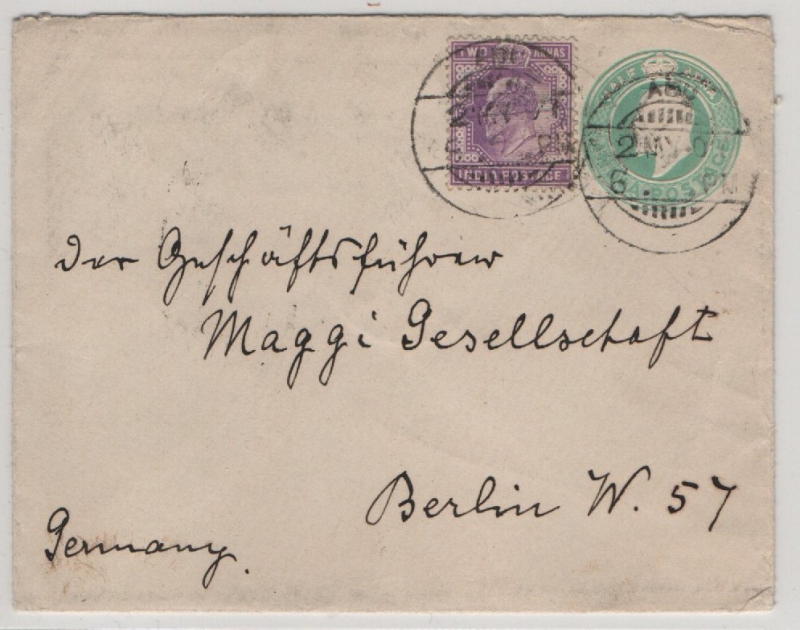 TWO ANNAS
INDIA POSTAGE
HALF ANNA
ABU
2 MY 0
6 PM
der Geschäftsführer
Maggi Gesellschaft
Berlin W. 57
Germany.